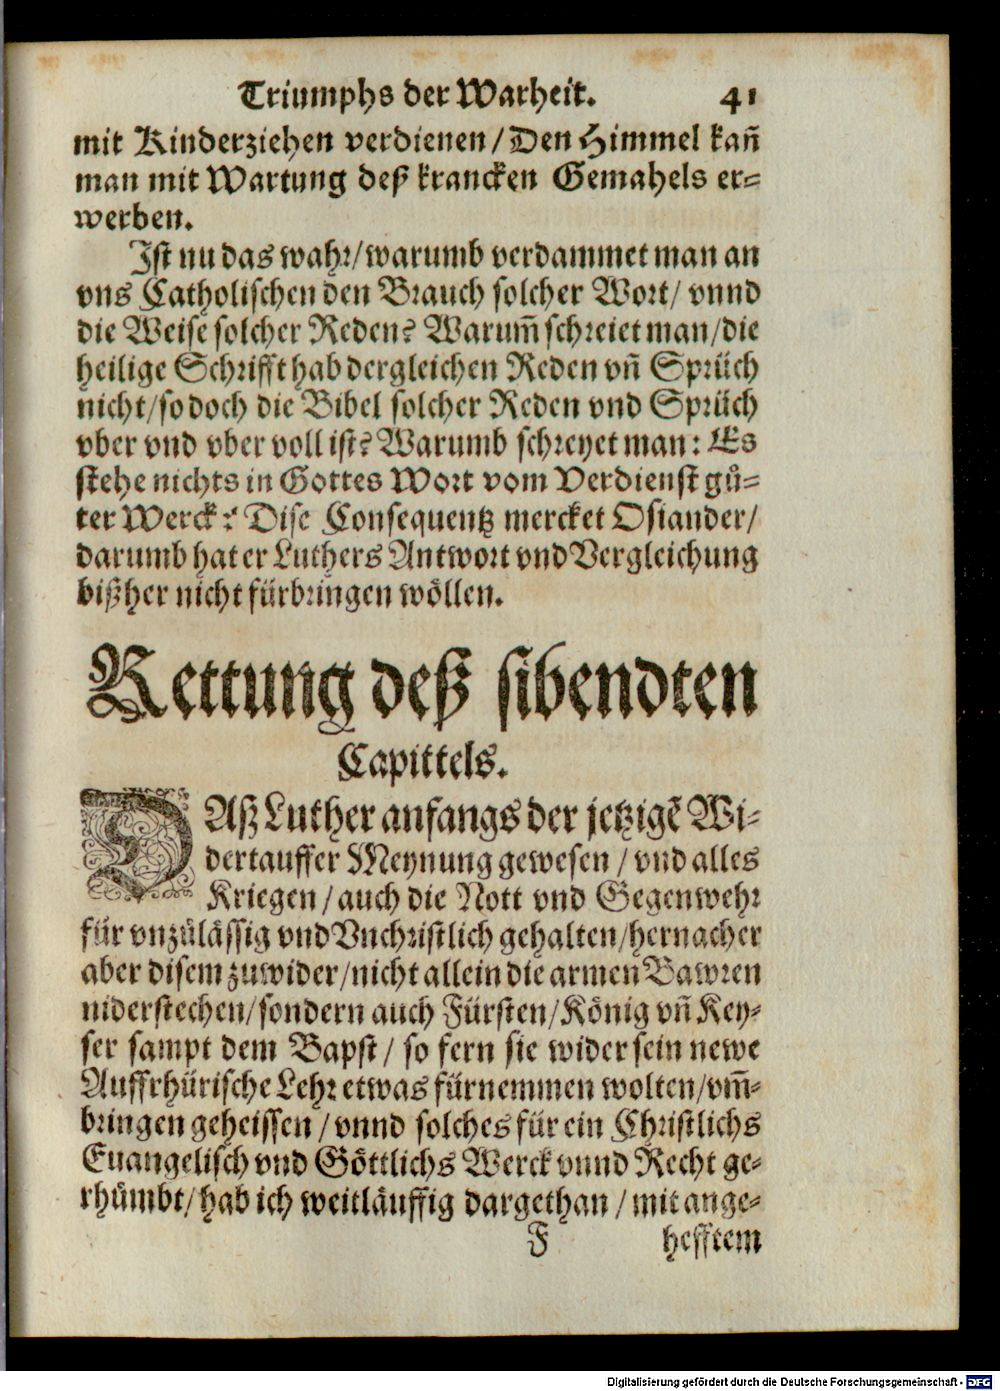 Triumphs der Warheit. 41
mit Kinderziehen verdienen / Den Himmel kañ
man mit Wartung deß krancken Gemahels er-
werben.
Ist nu das wahr / warumb verdammet man an
vns Catholischen den Brauch solcher Wort / vnnd
die Weise solcher Reden? Warum̃ schreiet man / die
heilige Schrifft hab dergleichen Reden vñ Sprüch
nicht / so doch die Bibel solcher Reden vnd Sprüch
vber vnd vber voll ist? Warumb schreyet man: Es
stehe nichts in Gottes Wort vom Verdienst gů-
ter Werck? Dise Consequentz mercket Osiander /
darumb hat er Luthers Antwort vnd Vergleichung
bißher nicht fürbringen wöllen.
Rettung deß sibendten
Capittels.
DAß Luther anfangs der jetzigẽ Wi-
dertauffer Meynung gewesen / vnd alles
Kriegen / auch die Nott vnd Gegenwehr
für vnzůlässig vnd Vnchristlich gehalten / hernacher
aber disem zuwider / nicht allein die armen Bawren
niderstechen / sondern auch Fürsten / König vñ Key-
ser sampt dem Bapst / so fern sie wider sein newe
Auffrhürische Lehr etwas fürnemmen wolten / vm̃-
bringen geheissen / vnnd solches für ein Christlichs
Euangelisch vnd Göttlichs Werck vnnd Recht ge-
rhůmbt / hab ich weitläuffig dargethan / mit ange-
F hefftem
Digitalisierung gefördert durch die Deutsche Forschungsgemeinschaft - DFG